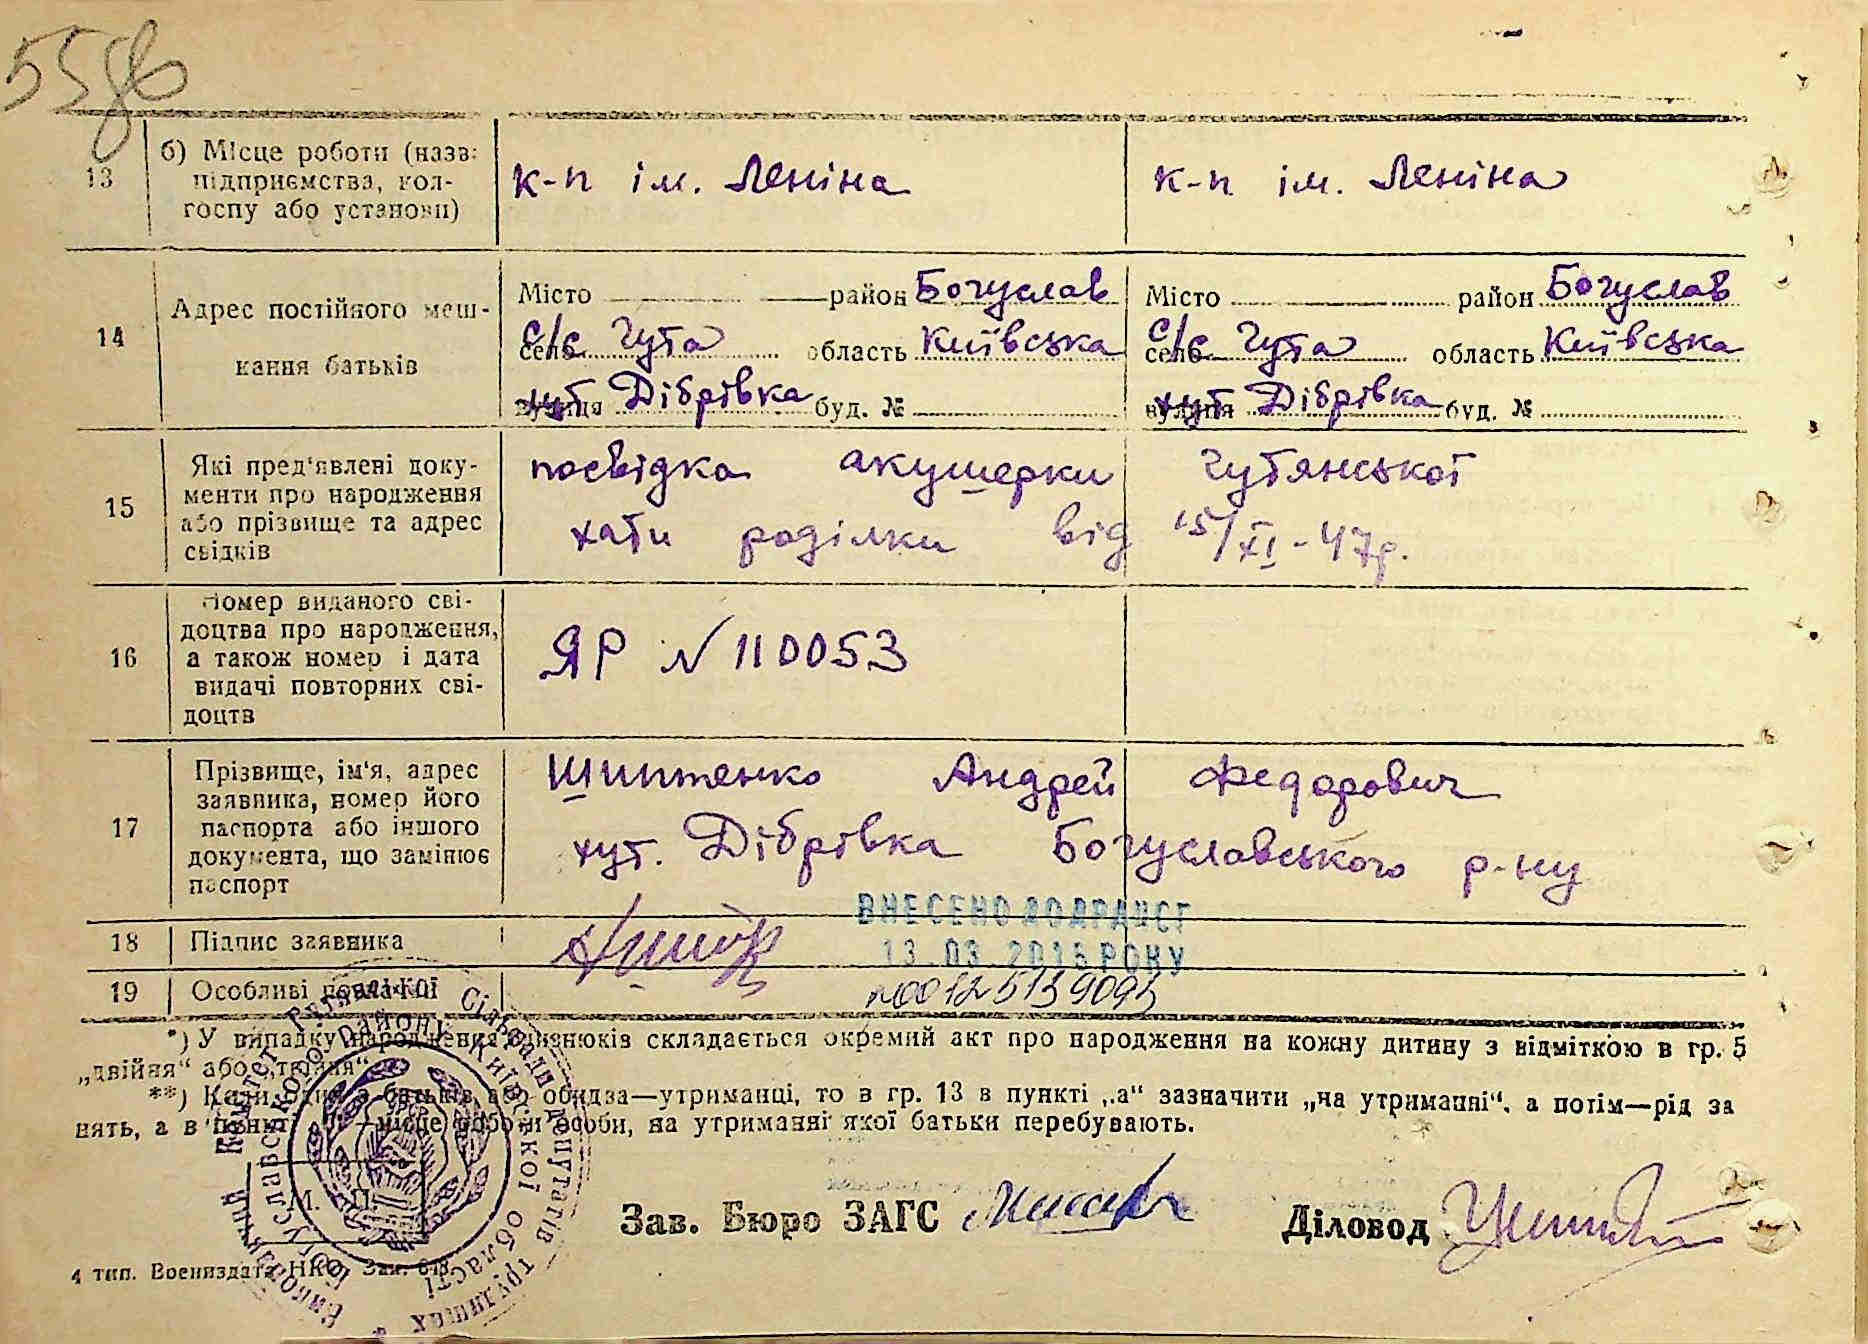 5586
13
б) Місце роботи (назв:
підприємства, кол-
госпу або установи)
к-п ім. Леніна
к-п ім. Леніна
14
Адрес постійного меш-
кання батьків
Місто район Богуслав
село с/с Чута область Київська
вулиця хут Дібрівка буд. №
Місто район Богуслав
село с/с Чута область Київська
вулиця хут Дібрівка буд. №
15
Які пред'явлені доку-
менти про народження
або прізвище та адрес
свідків
посвідка акушерки Чутянської
хати роділки від 15/XI-47р.
16
Номер виданого сві-
доцтва про народження,
а також номер і дата
видачі повторних сві-
доцтв
ЯР № 110053
17
Прізвище, ім'я, адрес
заявника, номер його
паспорта або іншого
документа, що замінює
паспорт
Шиптенко Андрей Федорович
хут. Дібрівка Богуславського р-ну
18
Підпис заявника
ВНЕСЕНО ДО ДРАЦСГ
13.03.2015 РОКУ
19
Особливі
*) У випадку народження близнюків складається окремий акт про народження на кожну дитину з відміткою в гр. 5
„двійня“ або „трійня“
**) Коли один з батьків або обидва—утриманці, то в гр. 13 в пункті „а“ зазначити „на утриманні“, а потім—рід за
нять, а в пункті —місце роботи особи, на утриманні якої батьки перебувають.
М. П.
Виконавчий Комітет Районної Сільради депутатів трудящих *
Богуславського району Київської області
Зав. Бюро ЗАГС
Діловод
4 тип. Воениздата НКО. Зак. 618